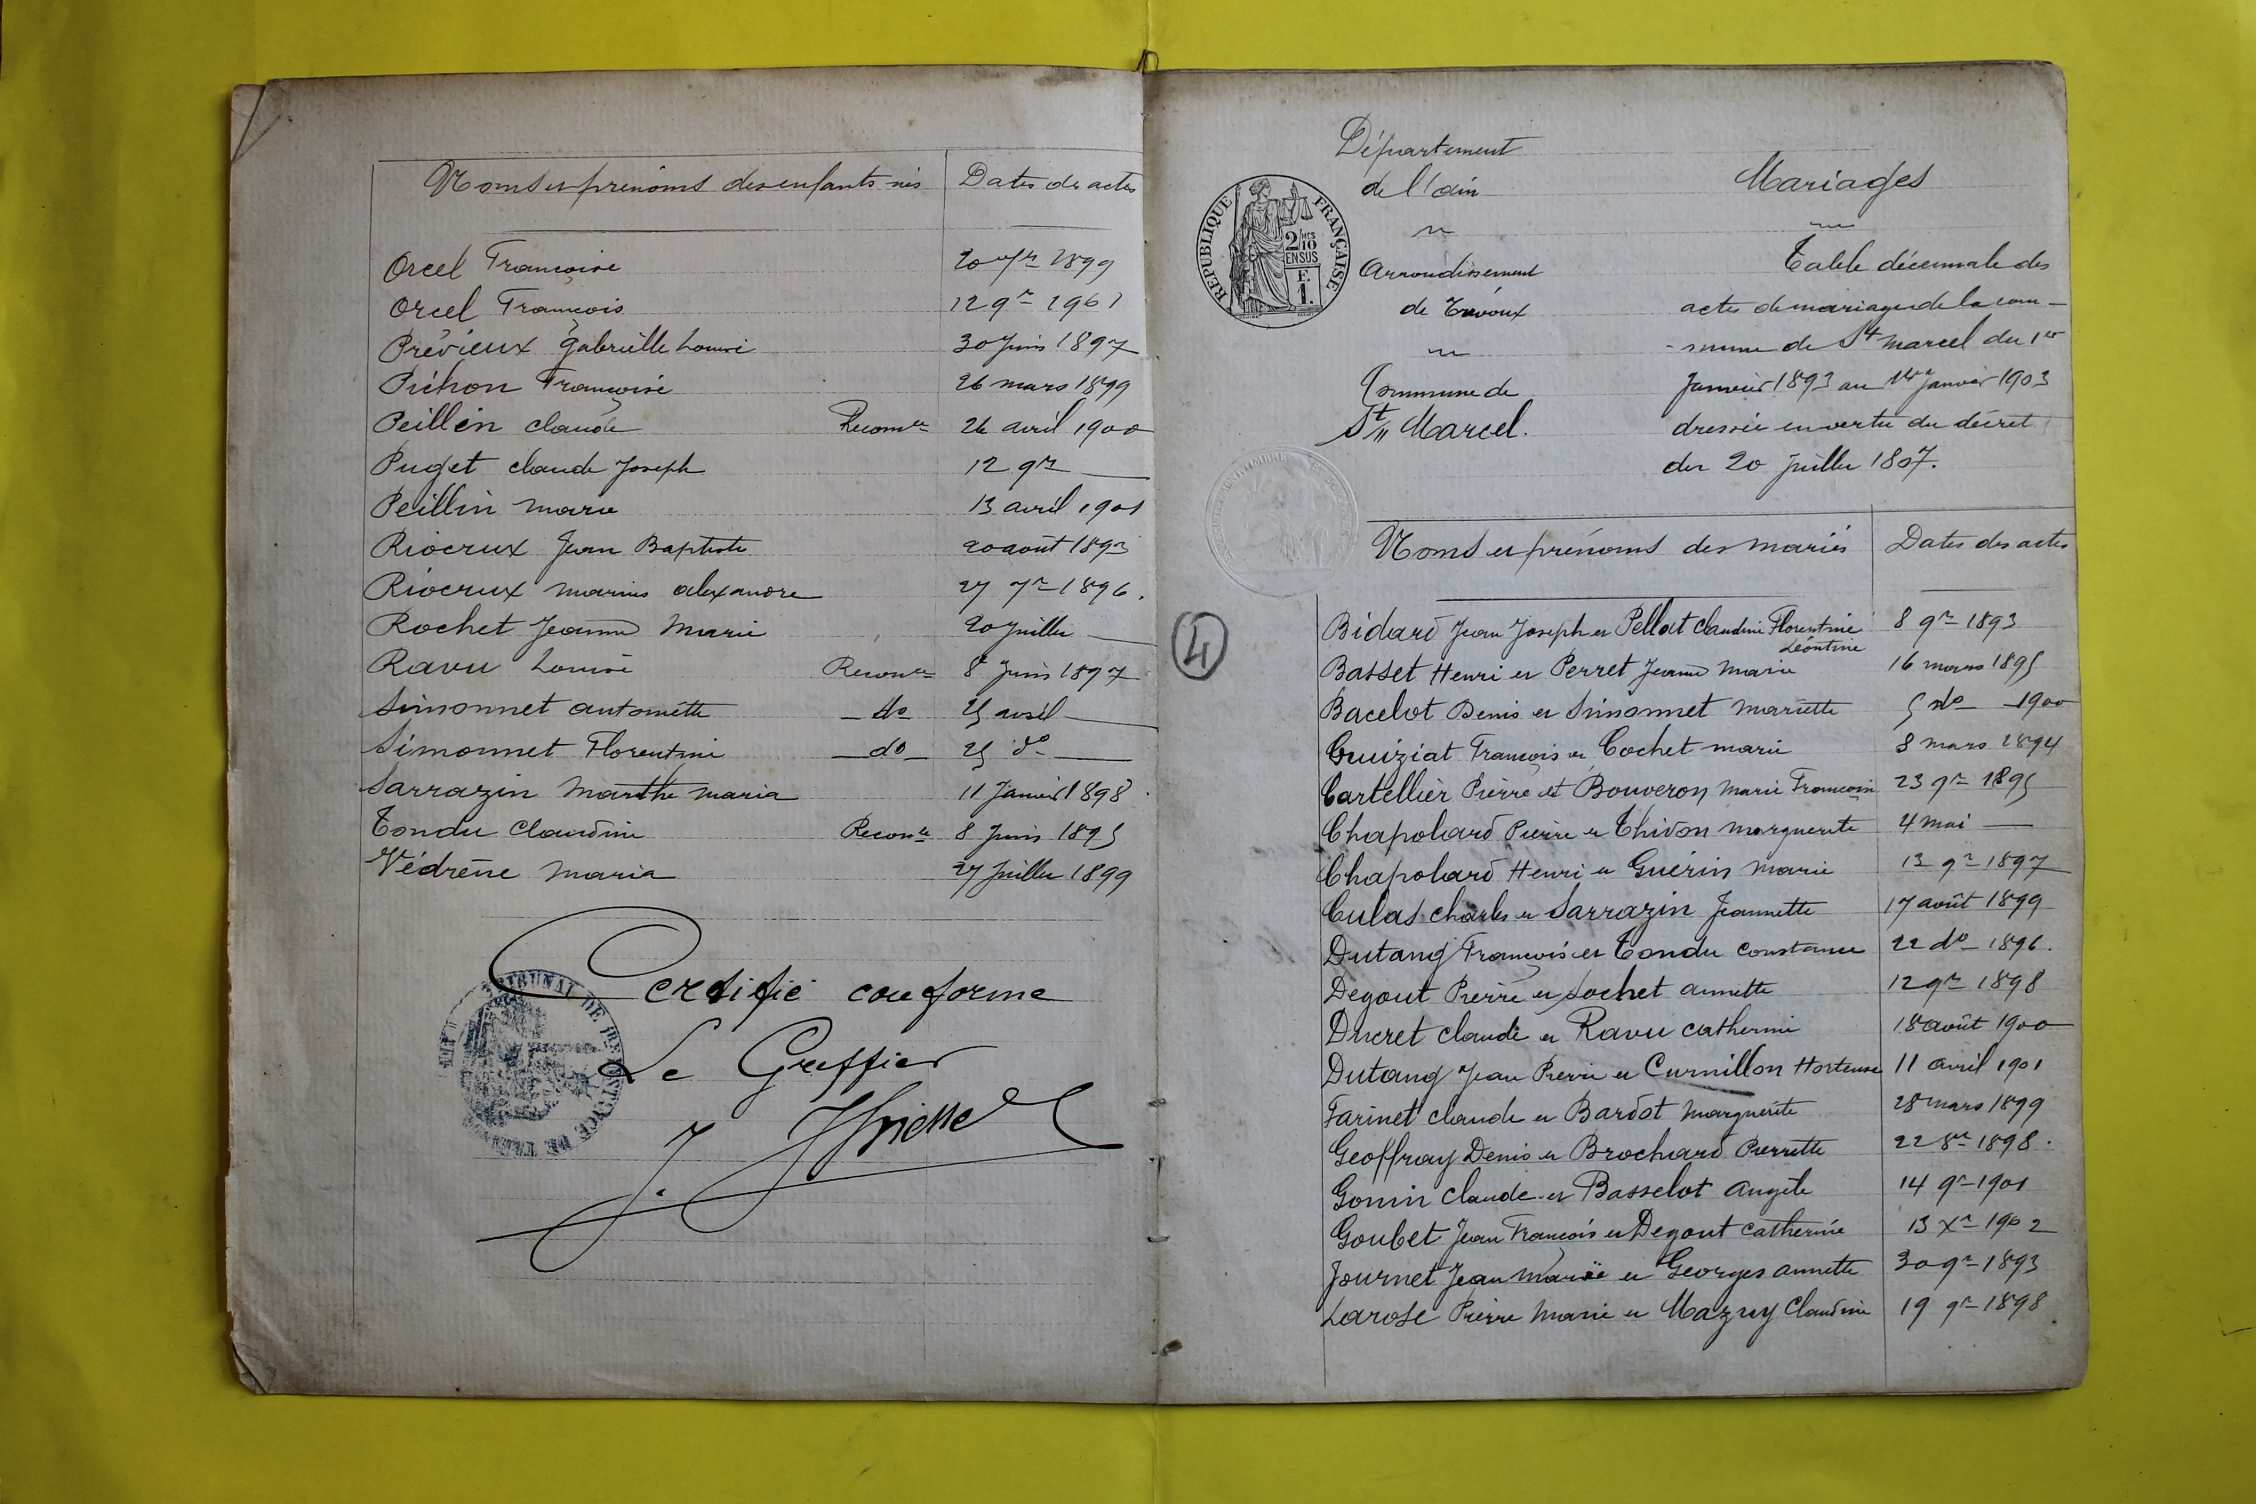 Noms et prénoms des enfants nés Dates des actes
Orcel Françoise 1899
Orcel François 12 9re 1901
Prévieux Gabrielle Louise 30 Juin 1897
Pichon Françoise 26 mars 1899
Peillin Claude Reconce 26 avril 1900
Puget Claude Joseph 12 9re —
Peillin Marie 13 avril 1901
Riocrux Jean Baptiste 20 août 1893
Riocrux Marius Alexandre 27 7re 1896.
Rochet Jeanne Marie 20 Juillet —
Ravu Louise Reconce 8 Juin 1897
Simonnet Antoinette — do — 25 avril —
Simonnet Florentine — do — 25 do —
Sarrazin Marthe Maria 11 Janvier 1898
Tondu Claudine Reconce 8 Juin 1895
Védrène Maria 27 Juillet 1899
Certifié conforme
Le Greffier
TRIBUNAL DE 1RE INSTANCE DE
4
Département
de l'ain
Arrondissement
de Trévoux
Commune de
St Marcel.
RÉPUBLIQUE FRANÇAISE
2/10
EN SUS
F.
1.
Mariages
Table décennale des
actes de mariage de la com-
-mune de St Marcel du 1er
Janvier 1893 au 1er Janvier 1903
dressée en vertu du décret
du 20 Juillet 1807.
Noms et prénoms des mariés Dates des actes
Bidard Jean Joseph et Pellat Claudine Florentine Léontine 8 9re 1893
Basset Henri et Perret Jeanne Marie 16 mars 1895
Bacelot Denis et Simonnet Mariette 5 do — 1900
Cruiziat François et Cochet Marie 8 mars 1894
Cartellier Pierre et Bouveron Marie Françoise 23 9re 1895
Chapolard Pierre et Thivon Marguerite 4 mai —
Chapolard Henri et Guérin Marie 13 9re 1897
Culas Charles et Sarrazin Jeannette 17 août 1899
Dutang François et Tondu Constance 22 do — 1896.
Degout Pierre et Sochet Annette 12 9re 1898
Ducret Claude et Ravu Catherine 18 août 1900
Dutang Jean Pierre et Curnillon Hortense 11 avril 1901
Farinet Claude et Bardot Marguerite 28 mars 1899
Geoffray Denis et Brochard Pierrette 22 8re 1898.
Gonin Claude et Basselot Angèle 14 9re 1901
Goubet Jean François et Degout Catherine 13 Xre 1902
Journet Jean Marie et Georges Annette 30 9re 1893
Larose Pierre Marie et Mazuy Claudine 19 9re 1898